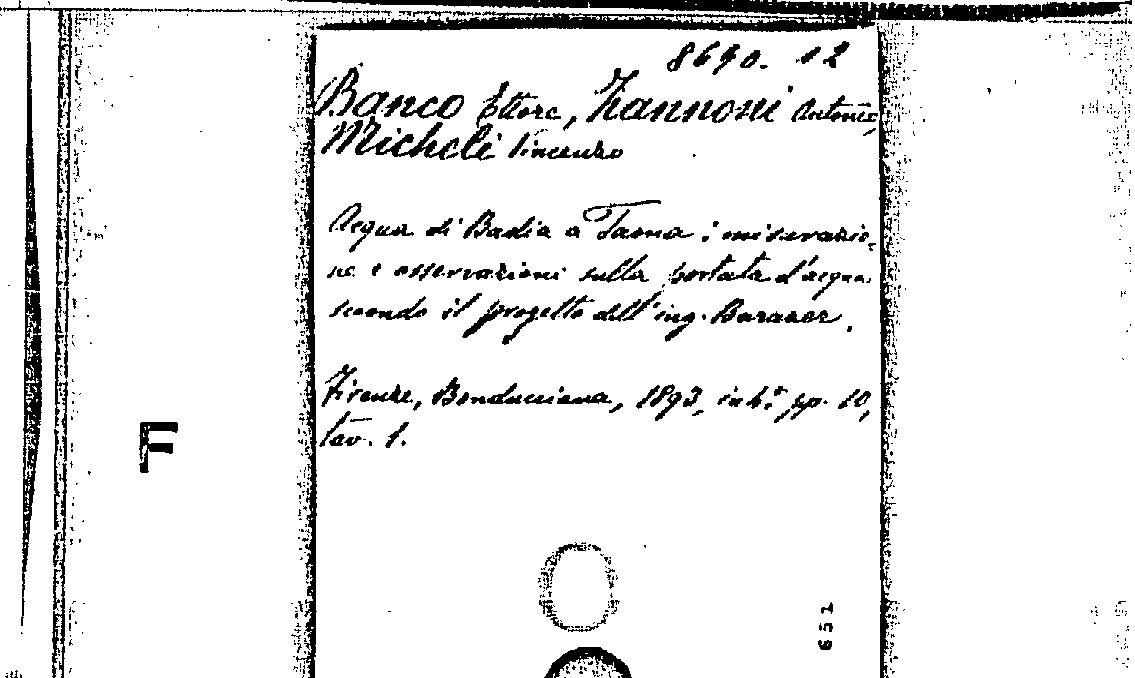 8690. 12
Banco Ettore, Zannoni Antonio,
Micheli Vincenzo
Acqua di Badia a Taona: misurazio-
ne e osservazioni sulla portata d'acqua
secondo il progetto dell'ing.
Firenze, Bonducciana, 1893, in 4.° pp. 10,
tav. 1.
F
651